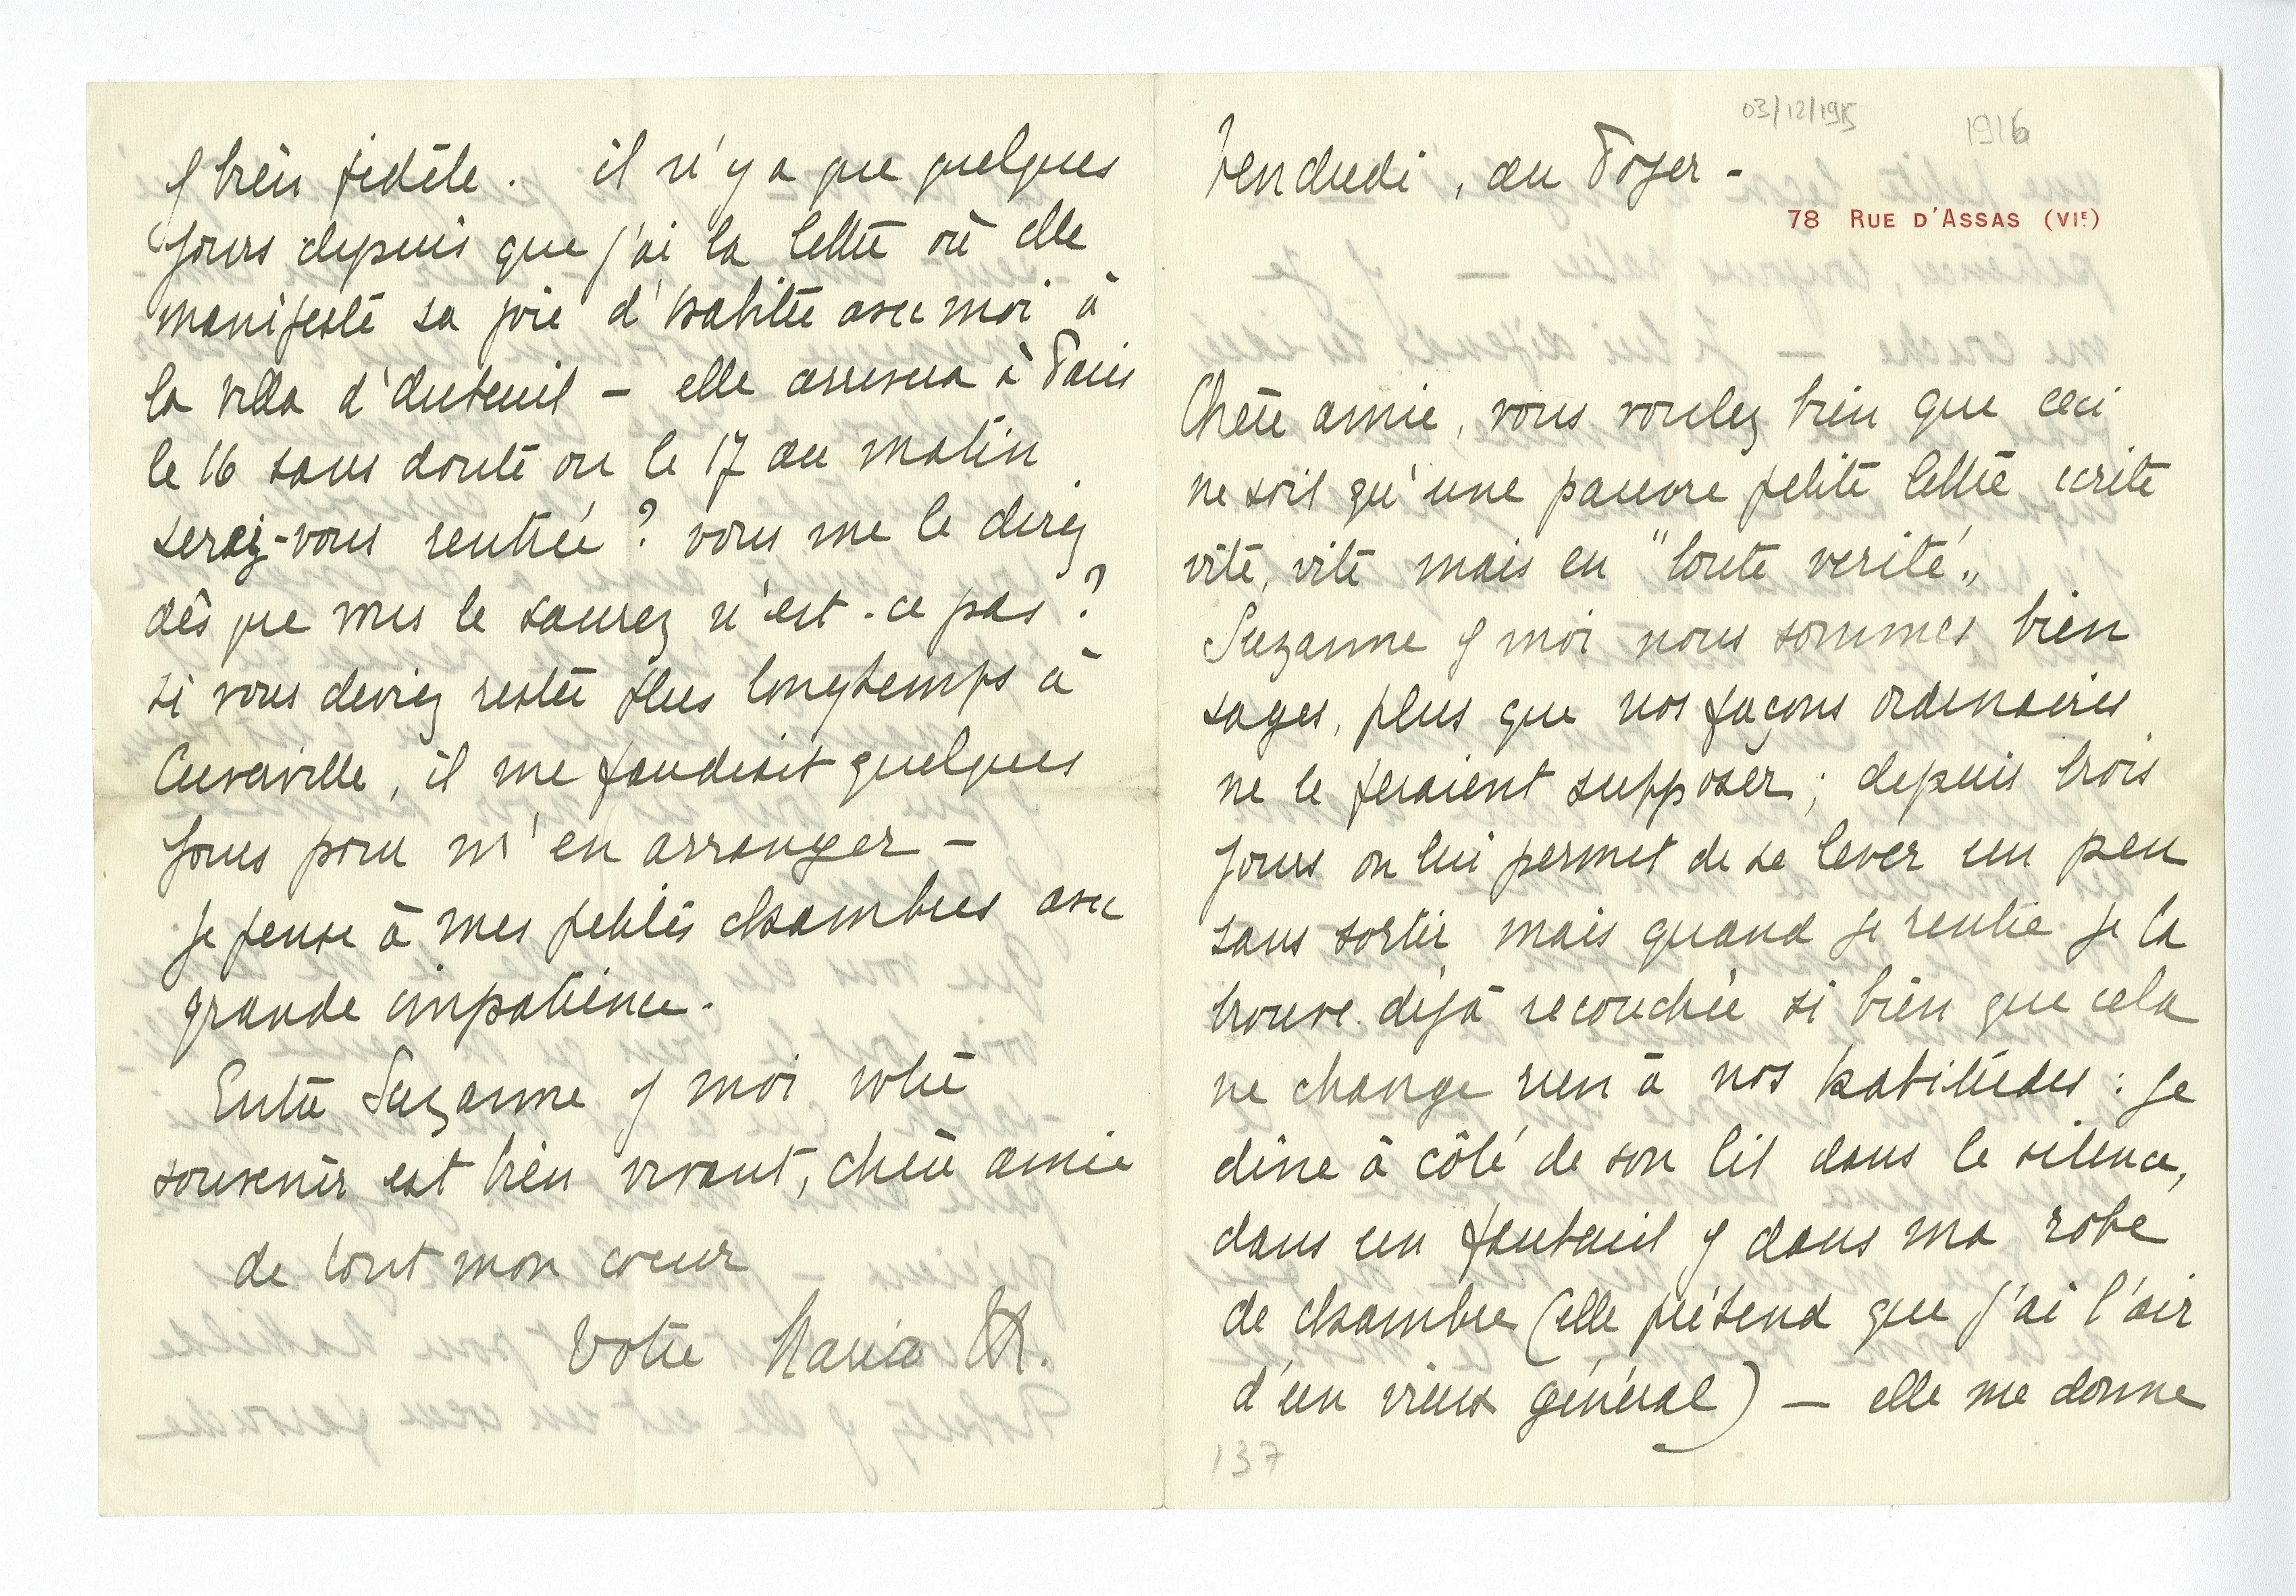 03/12/1915
1916
Vendredi, au Foyer -
78 RUE D'ASSAS (VIE)
Chère amie, vous voulez bien que ceci
ne soit qu'une pauvre petite lettre ecrite
vite, vite mais en "toute verité„
Suzanne & moi nous sommes bien
sages, plus que nos façons ordinaires
ne le feraient supposer ; depuis trois
jours on lui permet de se lever un peu
sans sortir mais quand je rentre je la
trouve déjà recouchée si bien que cela
ne change rien à nos habitudes : je
dîne à côté de son lit dans le silence,
dans un fauteuil & dans ma robe
de chambre (elle prétend que j'ai l'air
d'un vieux général) — elle me donne
137
& bien fidèle. il n'y a que quelques
jours depuis que j'ai la lettre où elle
manifeste sa joie d'habiter avec moi à
la villa d'Auteuil — elle arrivera à Paris
le 16 sans doute ou le 17 au matin
serez-vous rentrée ? vous me le direz
dès que vous le saurez n'est-ce pas ?
si vous deviez rester plus longtemps à
Cuverville, il me faudrait quelques
jours pour m'en arranger —
je pense à mes petites chambres avec
grande impatience.
Entre Suzanne & moi votre
souvenir est bien vivant, chère amie
de tout mon coeur
Votre Maria